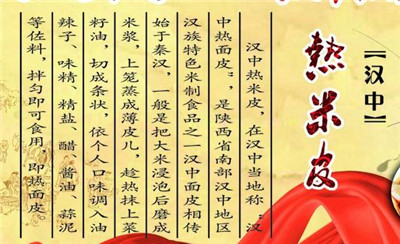 【汉中】
熱米皮
汉中热米皮，在汉中当地称：汉
中热面皮"，是陕西省南部汉中地区
汉族特色米制食品之一汉中面皮相传
始于秦汉，一般是把大米浸泡后磨成
米浆，上笼蒸成薄皮儿，趁热抹上菜
籽油，切成条状，依个人口味调入油
辣子、味精、精盐、醋、酱油、蒜泥
等佐料，拌匀即可食用，即热面皮